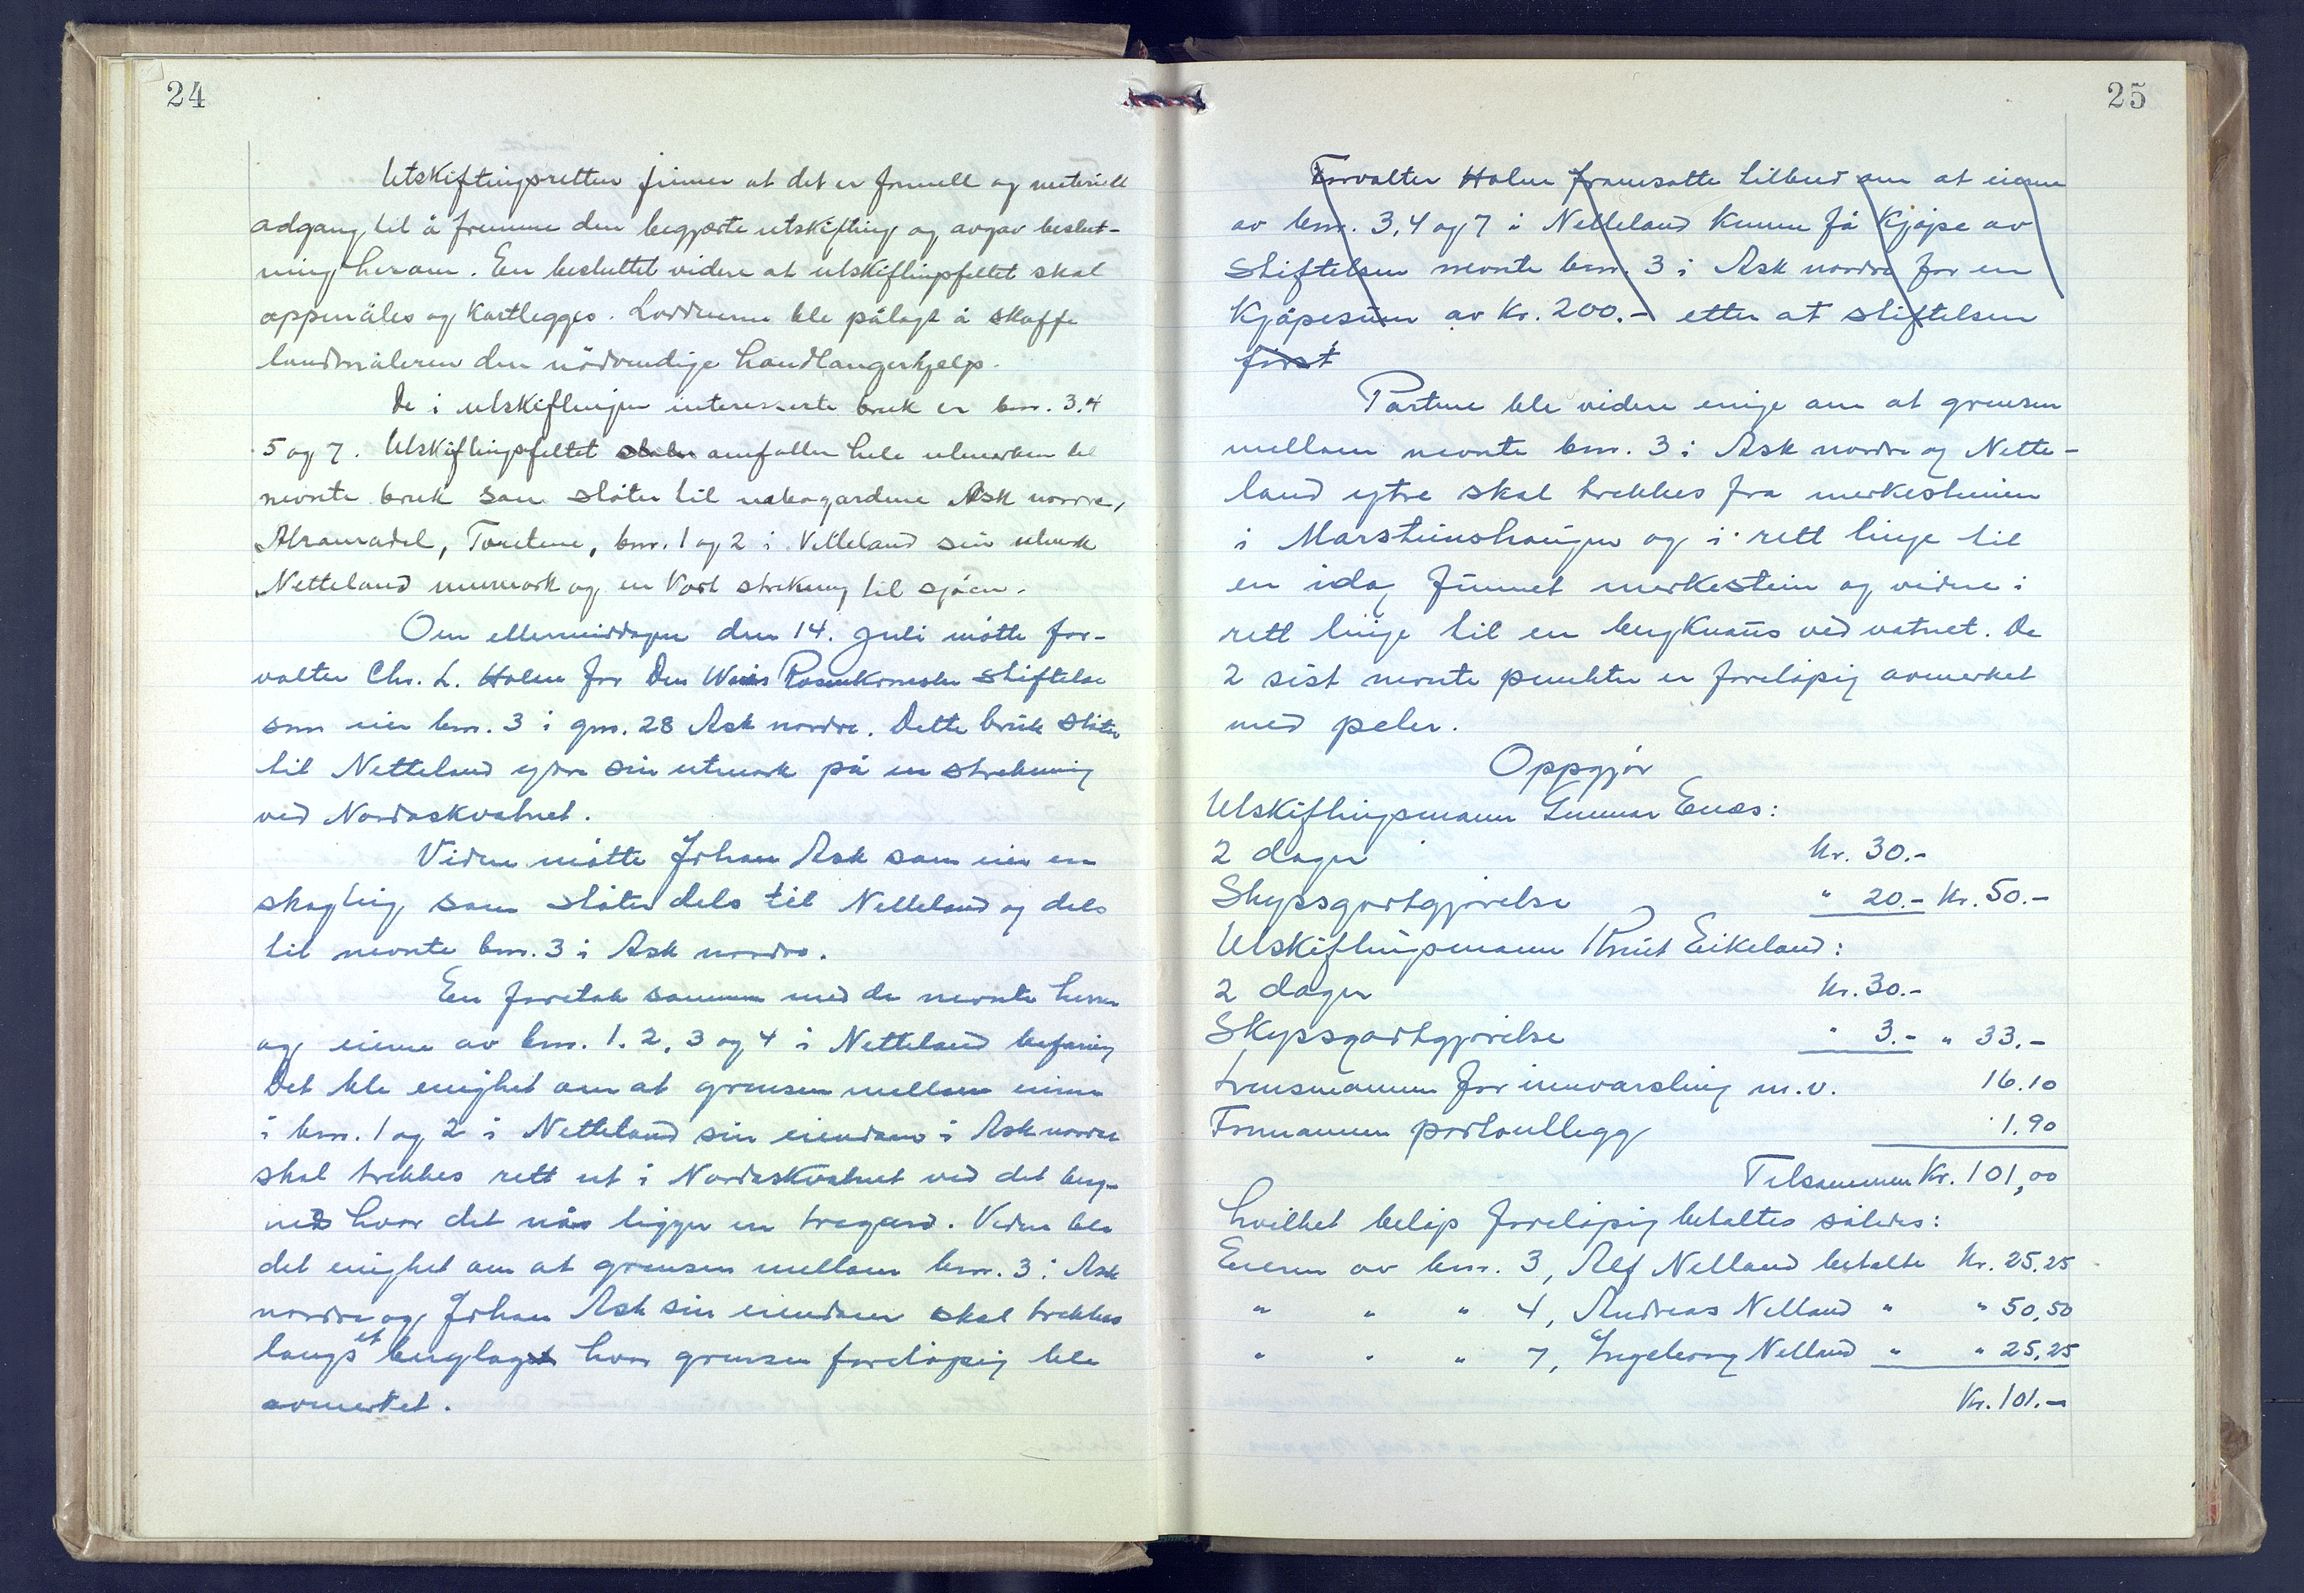 24
Utskiftingsretten finner at det er formell og materiell
adgang til å fremme den begjærte utskifting og avgav beslut-
ning herom. En besluttet videre at utskiftingsfeltet skal
oppmåles og kartlegges. Loddeierne ble pålagt å skaffe
landmåleren den nödvendige handlangerhjelp.
De i utskiftingen interesserte bruk er bnr. 3, 4
5 og 7. Utskiftingsfeltet omfatter hele utmarken til
nevnte bruk som støter til nabogardene Ask nordre,
Abramadal, Toretene, bnr. 1 og 2 i Netteland sin utmark
Netteland innmark og en kort strekning til sjøen.
Om ettermiddagen den 14. juli møtte for-
valter Chr. L. Holm for Den Weis Rosenkroneske stiftelse
som eier bnr. 3 i gnr. 28 Ask nordre. Dette bruk støter
til Netteland ytre sin utmark på en strekning
ved Nordaskvatnet.
Videre møtte Johan Ask som eier en
skogteig som støter dels til Netteland og dels
til nevnte bnr. 3 i Ask nordre.
En foretok sammen med de nevnte herrer
og eierne av bnr. 1, 2, 3 og 4 i Netteland befaring
Det ble enighet om at grensen mellom eierne
i bnr. 1 og 2 i Netteland sin eiendom i Ask nordre
skal trekkes rett ut i Nordaskvatnet ved det berg-
nes hvor det nå ligger en tregard. Videre ble
det enighet om at grensen mellom bnr. 3 i Ask
nordre og Johan Ask sin eiendom skal trekkes
langs et berglag hvor grensen foreløpig ble
avmerket.
25
Forvalter Holm framsatte tilbud om at eierne
av bnr. 3, 4 og 7 i Netteland kunne få kjøpe av
stiftelsen nevnte bnr. 3 i Ask nordre for en
kjøpesum av kr. 200.- etter at stiftelsen
først
Partene ble videre enige om at grensen
mellom nevnte bnr. 3 i Ask nordre og Nette-
land ytre skal trekkes fra merkesteinen
i Marsteinshaugen og i rett linje til
en idag funnet merkestein og videre i
rett linje til en bergknaus ved vatnet. De
2 sist nevnte punkter er foreløpig avmerket
med peler.
Oppgjør
Utskiftingsmann Gunnar Enes:
2 dager kr. 30.-
Skyssgodtgjørelse " 20.- kr. 50.-
Utskiftingsmann Knut Eikeland:
2 dager kr. 30.-
Skyssgodtgjørelse " 3.- " 33.-
Lensmannen for innvarsling m.v. 16.10
Formannen portoutlegg 1.90
Tilsammen kr. 101,00
hvilket beløp foreløpig betaltes således:
Eieren av bnr. 3, Alf Nelland betalte kr. 25,25
" " " 4, Andreas Nelland " " 50,50
" " " 7, Ingeborg Nelland " " 25,25
Kr. 101.-